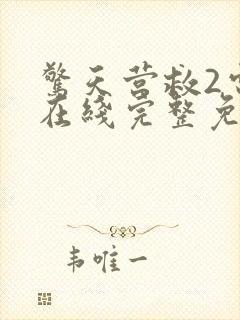 驚天营救2
在綫完整免
韦唯一